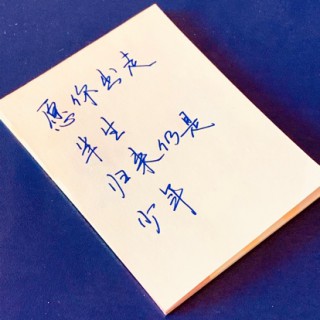 愿你出走
半生
归来仍是
少年